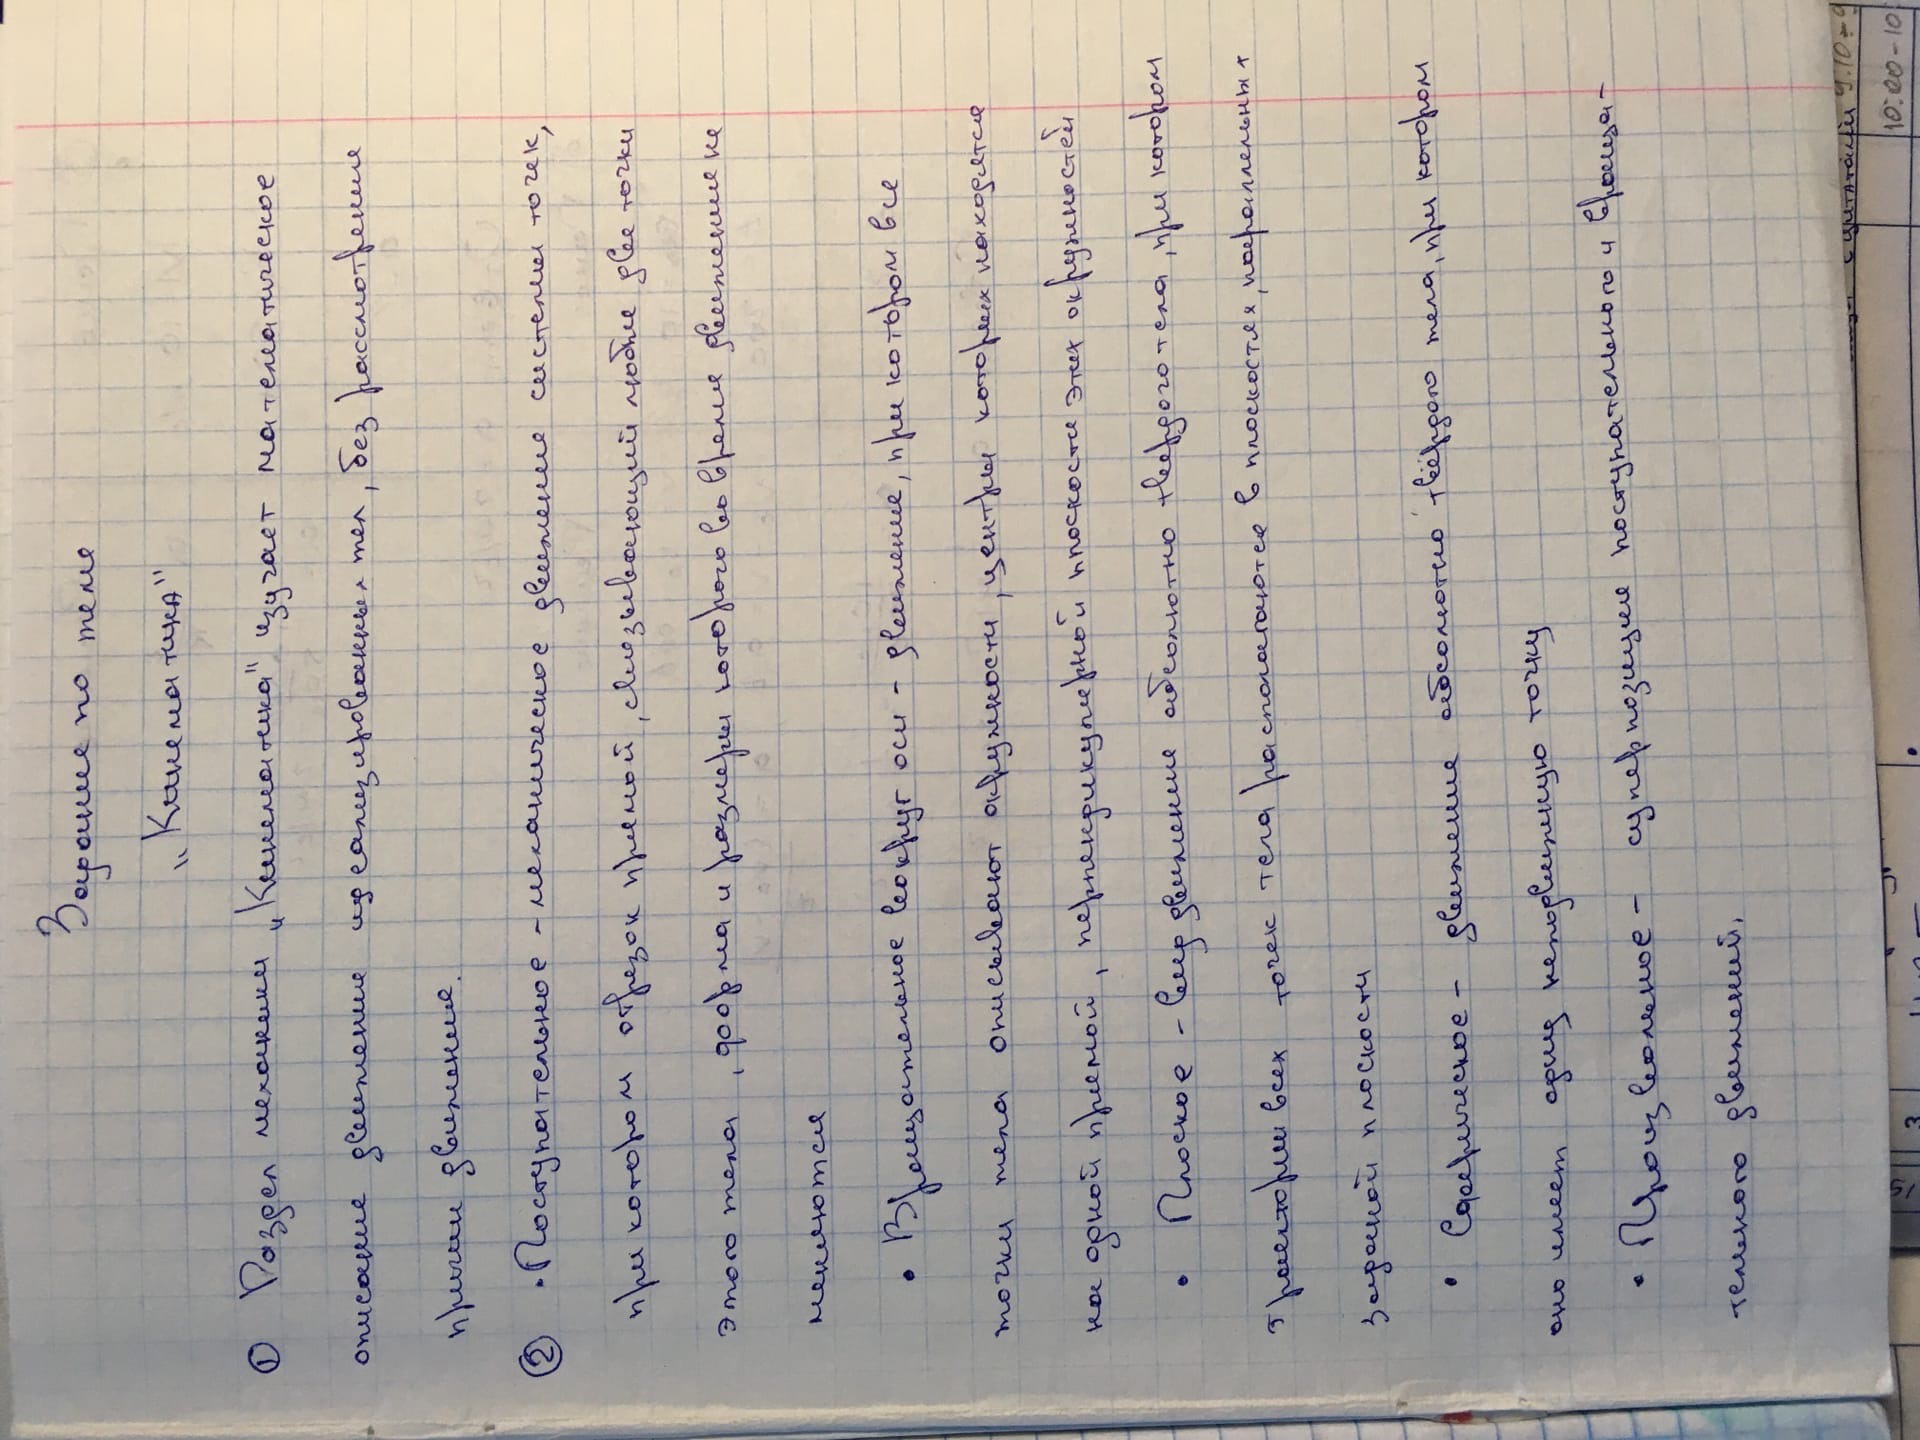 Задание по теме
„Кинематика"
① Раздел механики „Кинематика" изучает математическое
описание движение идеализированных тел, без рассмотрения
причин движения.
② • Поступательное – механическое движение системы точек,
при котором отрезок прямой, связывающий любые две точки
этого тела, форма и размеры которого во время движения не
меняются
• Вращательное вокруг оси – движение, при котором все
точки тела описывают окружности, центры которых находятся
на одной прямой, перпендикулярной плоскости этих окружностей
• Плоское – вид движения абсолютно твердого тела, при котором
траектории всех точек тела располагаются в плоскостях, параллельных
заданой плоскости
• Сферическое – движение абсолютно твёрдого тела, при котором
оно имеет одну неподвижную точку
• Произвольное – суперпозиция поступательного и враща-
тельного движений.
с цитатами 9.10-9
10:00-10
3